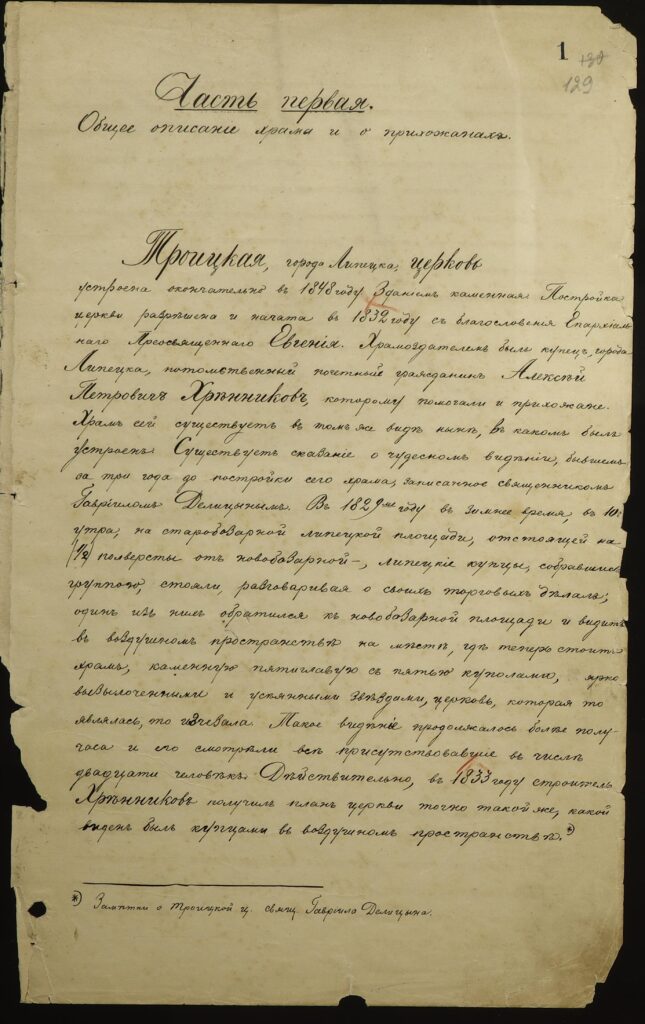 1
130
129
Часть первая.
Общее описанiе храма и о прихожанахъ.
Троицкая, города Липецка, церковь
устроена окончательно въ 1848 году. Зданiемъ каменная. Постройка
церкви разрѣшена и начата въ 1832 году съ благословенiя Епархiаль
наго Преосвященнаго Евгенiя. Храмоздателемъ былъ купецъ, города
Липецка, потомственный почетный гражданинъ Алексѣй
Петровичъ Хрѣнниковъ, которому помогали и прихожане.
Храмъ сей существуетъ въ томъ же видѣ нынѣ, въ какомъ былъ
устроенъ. Существуетъ сказанiе о чудесномъ видѣнiи, бывшемъ
за три года до постройки сего храма, записанное священникомъ
Гаврiиломъ Делицынымъ. Въ 1829мъ году въ зимнее время, въ 10ъ
утра, на старобазарной липецкой площади, отстоящей на
(1/2) полверсты отъ новобазарной –, липецкiе купцы, собравшись
группою, стояли, разговаривая о своихъ торговыхъ дѣлахъ;
одинъ изъ нихъ обратился къ новобазарной площади и видитъ
въ воздушномъ пространствѣ на мѣстѣ, гдѣ теперь стоитъ
храмъ, каменную пятиглавую съ пятью куполами, ярко
вызолоченными и усѣянными звѣздами, церковь, которая то
являлась, то изчезала. Такое видѣнiе продолжалось болѣе полу-
часа и его смотрѣли всѣ присутствовавшiе въ числѣ
двадцати человѣкъ. Дѣйствительно, въ 1833 году строитель
Хрѣнниковъ получилъ планъ церкви точно такой же, какой
виденъ былъ купцами въ воздушномъ пространствѣ.*)
*) Замѣтки о Троицкой ц. свящ. Гаврiила Делицына.